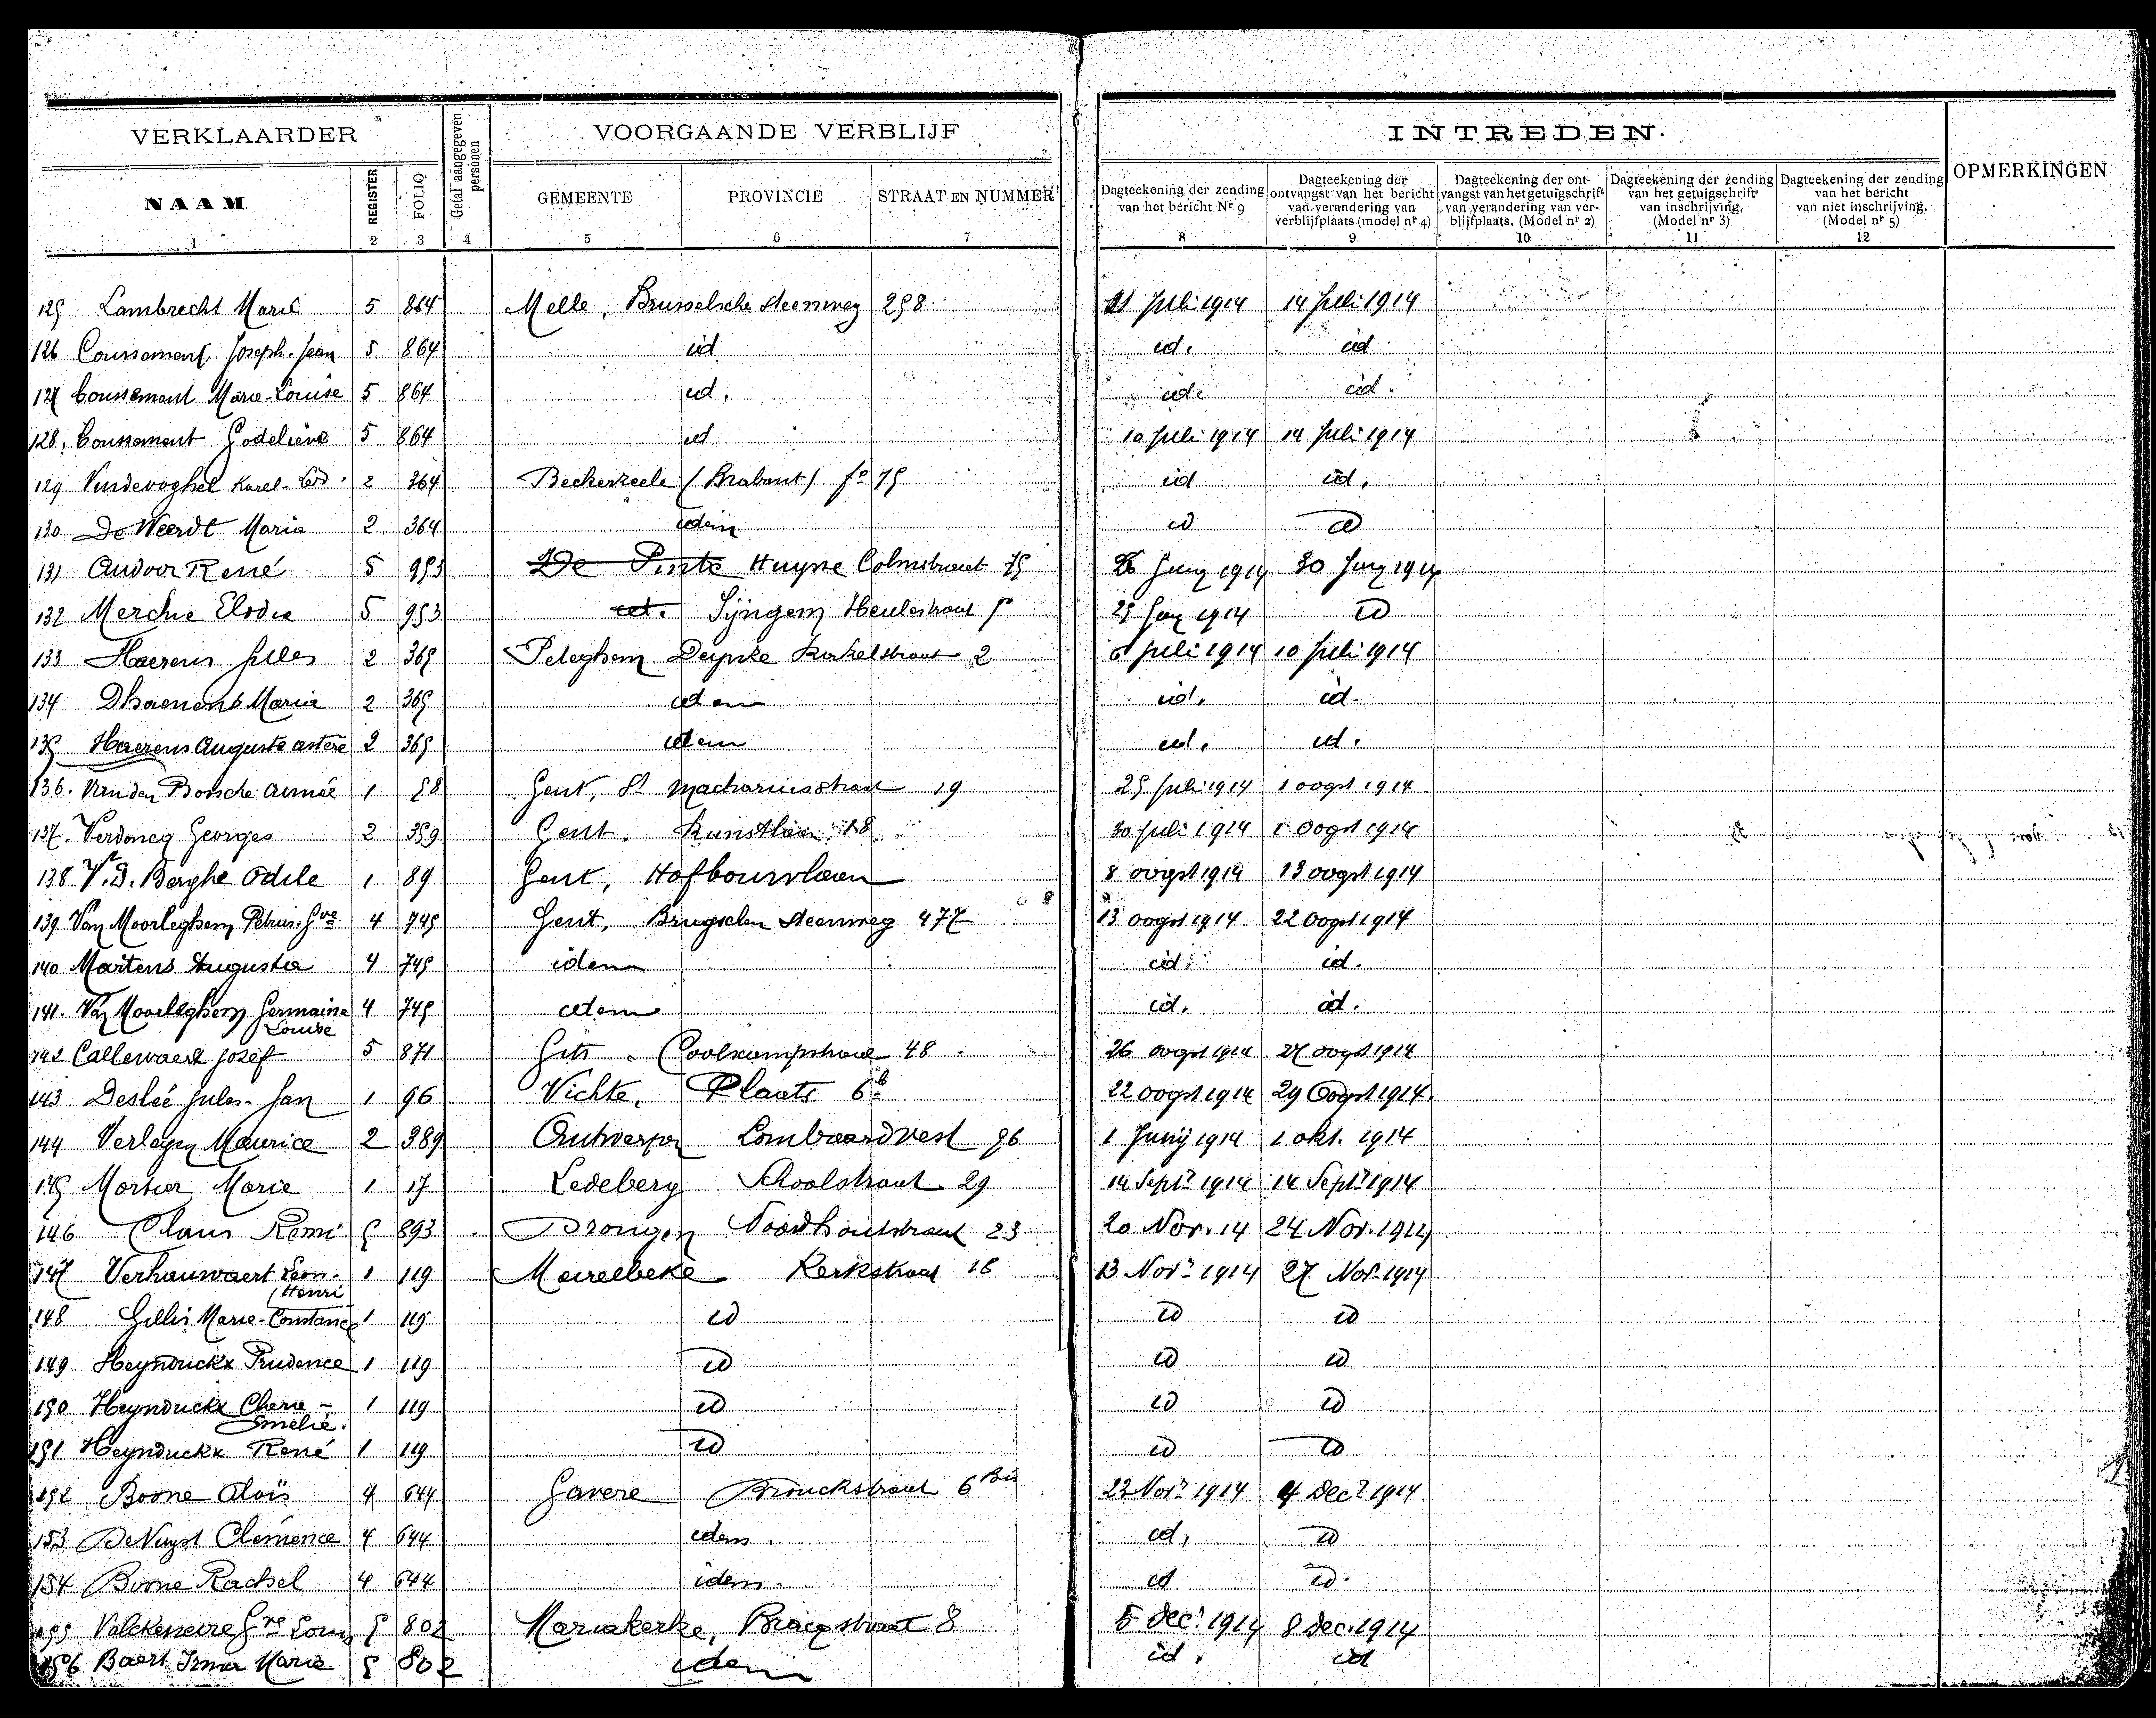 VERKLAARDER
Getal aangegeven personen
VOORGAANDE VERBLIJF
INTREDEN
OPMERKINGEN
NAAM REGISTER FOLIO GEMEENTE PROVINCIE STRAAT EN NUMMER
Dagteekening der zending van het bericht Nr 9
Dagteekening der ontvangst van het bericht van verandering van verblijfplaats (model nr 4)
Dagteekening der ontvangst van het getuigschrift van verandering van verblijfplaats. (Model nr 2)
Dagteekening der zending van het getuigschrift van inschrijving. (Model nr 3)
Dagteekening der zending van het bericht van niet inschrijving. (Model nr 5)
1 2 3 4 5 6 7 8 9 10 11 12
125 Lambrecht Marie 5 864 Melle, Brusselsche steenweg 258 11 Juli 1914 14 Juli 1914
126 Coussement Joseph-Jean 5 864 id id. id
127 Coussement Marie-Louise 5 864 id. id. id.
128. Coussement Godelieve 5 864 id 10 Juli 1914 14 Juli 1914
129 Vindevoghel Karel-Lod. 2 364 Beckerzeele (Brabant) fo 75 id id.
130 De Weerdt Maria 2 364 idem id id
131 Audoor René 5 953 De Pinte Huysse Colmstraat 75 26 Juny 1914 30 Juny 1914
132 Merchie Elodie 5 953 id. Syngem Heulestraat 5 25 Juny 1914 id
133 Haerens Jules 2 365 Peteghem Deynze Kerkelstraat 2 6 Juli 1914 10 Juli 1914
134 Dhaenens Maria 2 365 idem id. id.
135 Haerens Auguste astère 2 365 idem id. id.
136. Van den Bossche Aimée 1 58 Gent, St Machariusstraat 19 25 Juli 1914 1 oogst 1914
137. Verdoncq Georges 2 359 Gent. Kunstlaan 18 30 Juli 1914 1 Oogst 1914
138 V.D. Berghe Odile 1 89 Gent, Hofbouwlaan 8 oogst 1914 13 oogst 1914
139 Van Moorleghem Petrus-Gve 4 745 Gent, Brugschen steenweg 477 13 oogst 1914 22 Oogst 1914
140 Martens Augusta 4 745 idem id. id.
141. Van Moorleghem Germaine Louise 4 745 idem id. id.
142 Callewaert Jozef 5 871 Gits. Coolscampstraat 48. 26 oogst 1914 27 oogst 1914
143 Deslée Jules-Jan 1 96 Vichte, Plaats 6b 22 oogst 1914 29 Oogst 1914.
144 Verleyen Maurice 2 389 Antwerpen Lombaardvest 96 1 Junij 1914 1 okt. 1914
145 Mortier Marie 1 17 Ledeberg Schoolstraat 29 14 Septr 1914 14 Septr 1914
146 Claus Remi 5 893 Drongen Noordhoutstraat 23 20 Nov. 14 24 Nov. 1914
147 Verhauwaert Leon-Henri 1 119 Meirelbeke Kerkstraat 16 13 Novr 1914 27 Nov. 1914
148 Gillis Marie-Constance 1 119 id id id
149 Heynduckx Prudence 1 119 id id id
150 Heynduckx Clara-Emelie. 1 119 id id id
151 Heynduckx René 1 119 id id id
152 Boone Aloïs 4 644 Gavere Brouckstraat 6 Bis 23 Novr 1914 4 Decr 1914
153 De Nuyst Clemence 4 644 idem. id. id
154 Boone Rachel 4 644 idem. id id.
155 Valckeneire Gve Louis 5 802 Mariakerke, Bracqstraat 8 5 Decr 1914 8 Dec. 1914
156 Baert Irma Marie 5 802 idem id. id